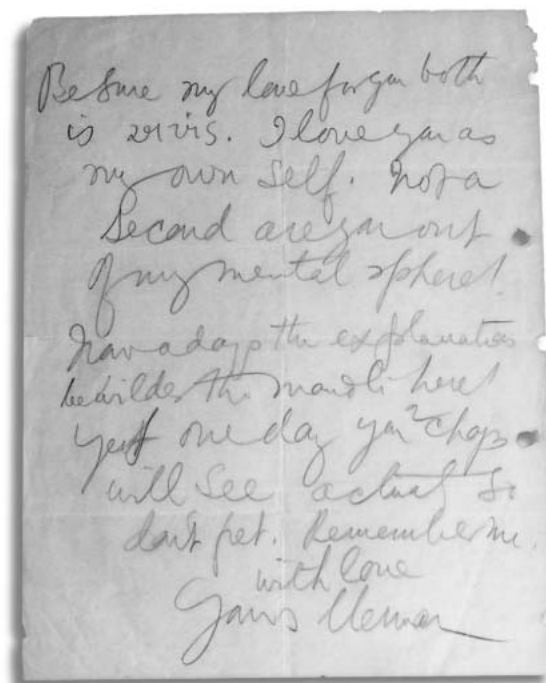 Be sure my love for you both
is . I love you as
my own self. Not a
second are you out
of my mental sphere!
Nowadays the explanations
bewilder the mandli here!
Yet one day you 2 chaps
will see actual so
don't fret. Remember me.
with love
Yours Merwan